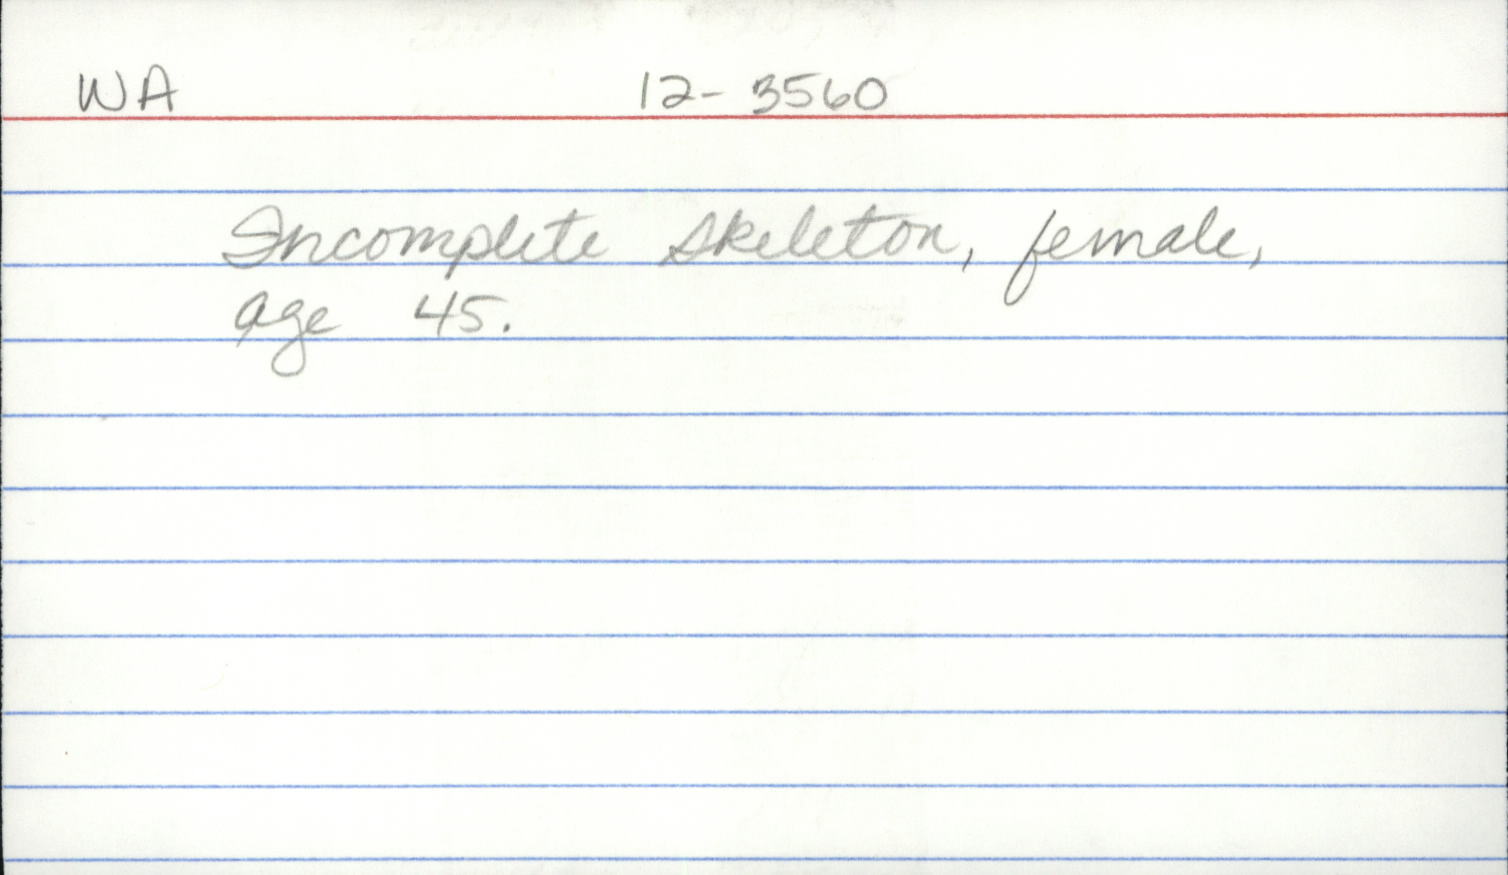 WA 12-3560
Incomplete skeleton, female,
age 45.